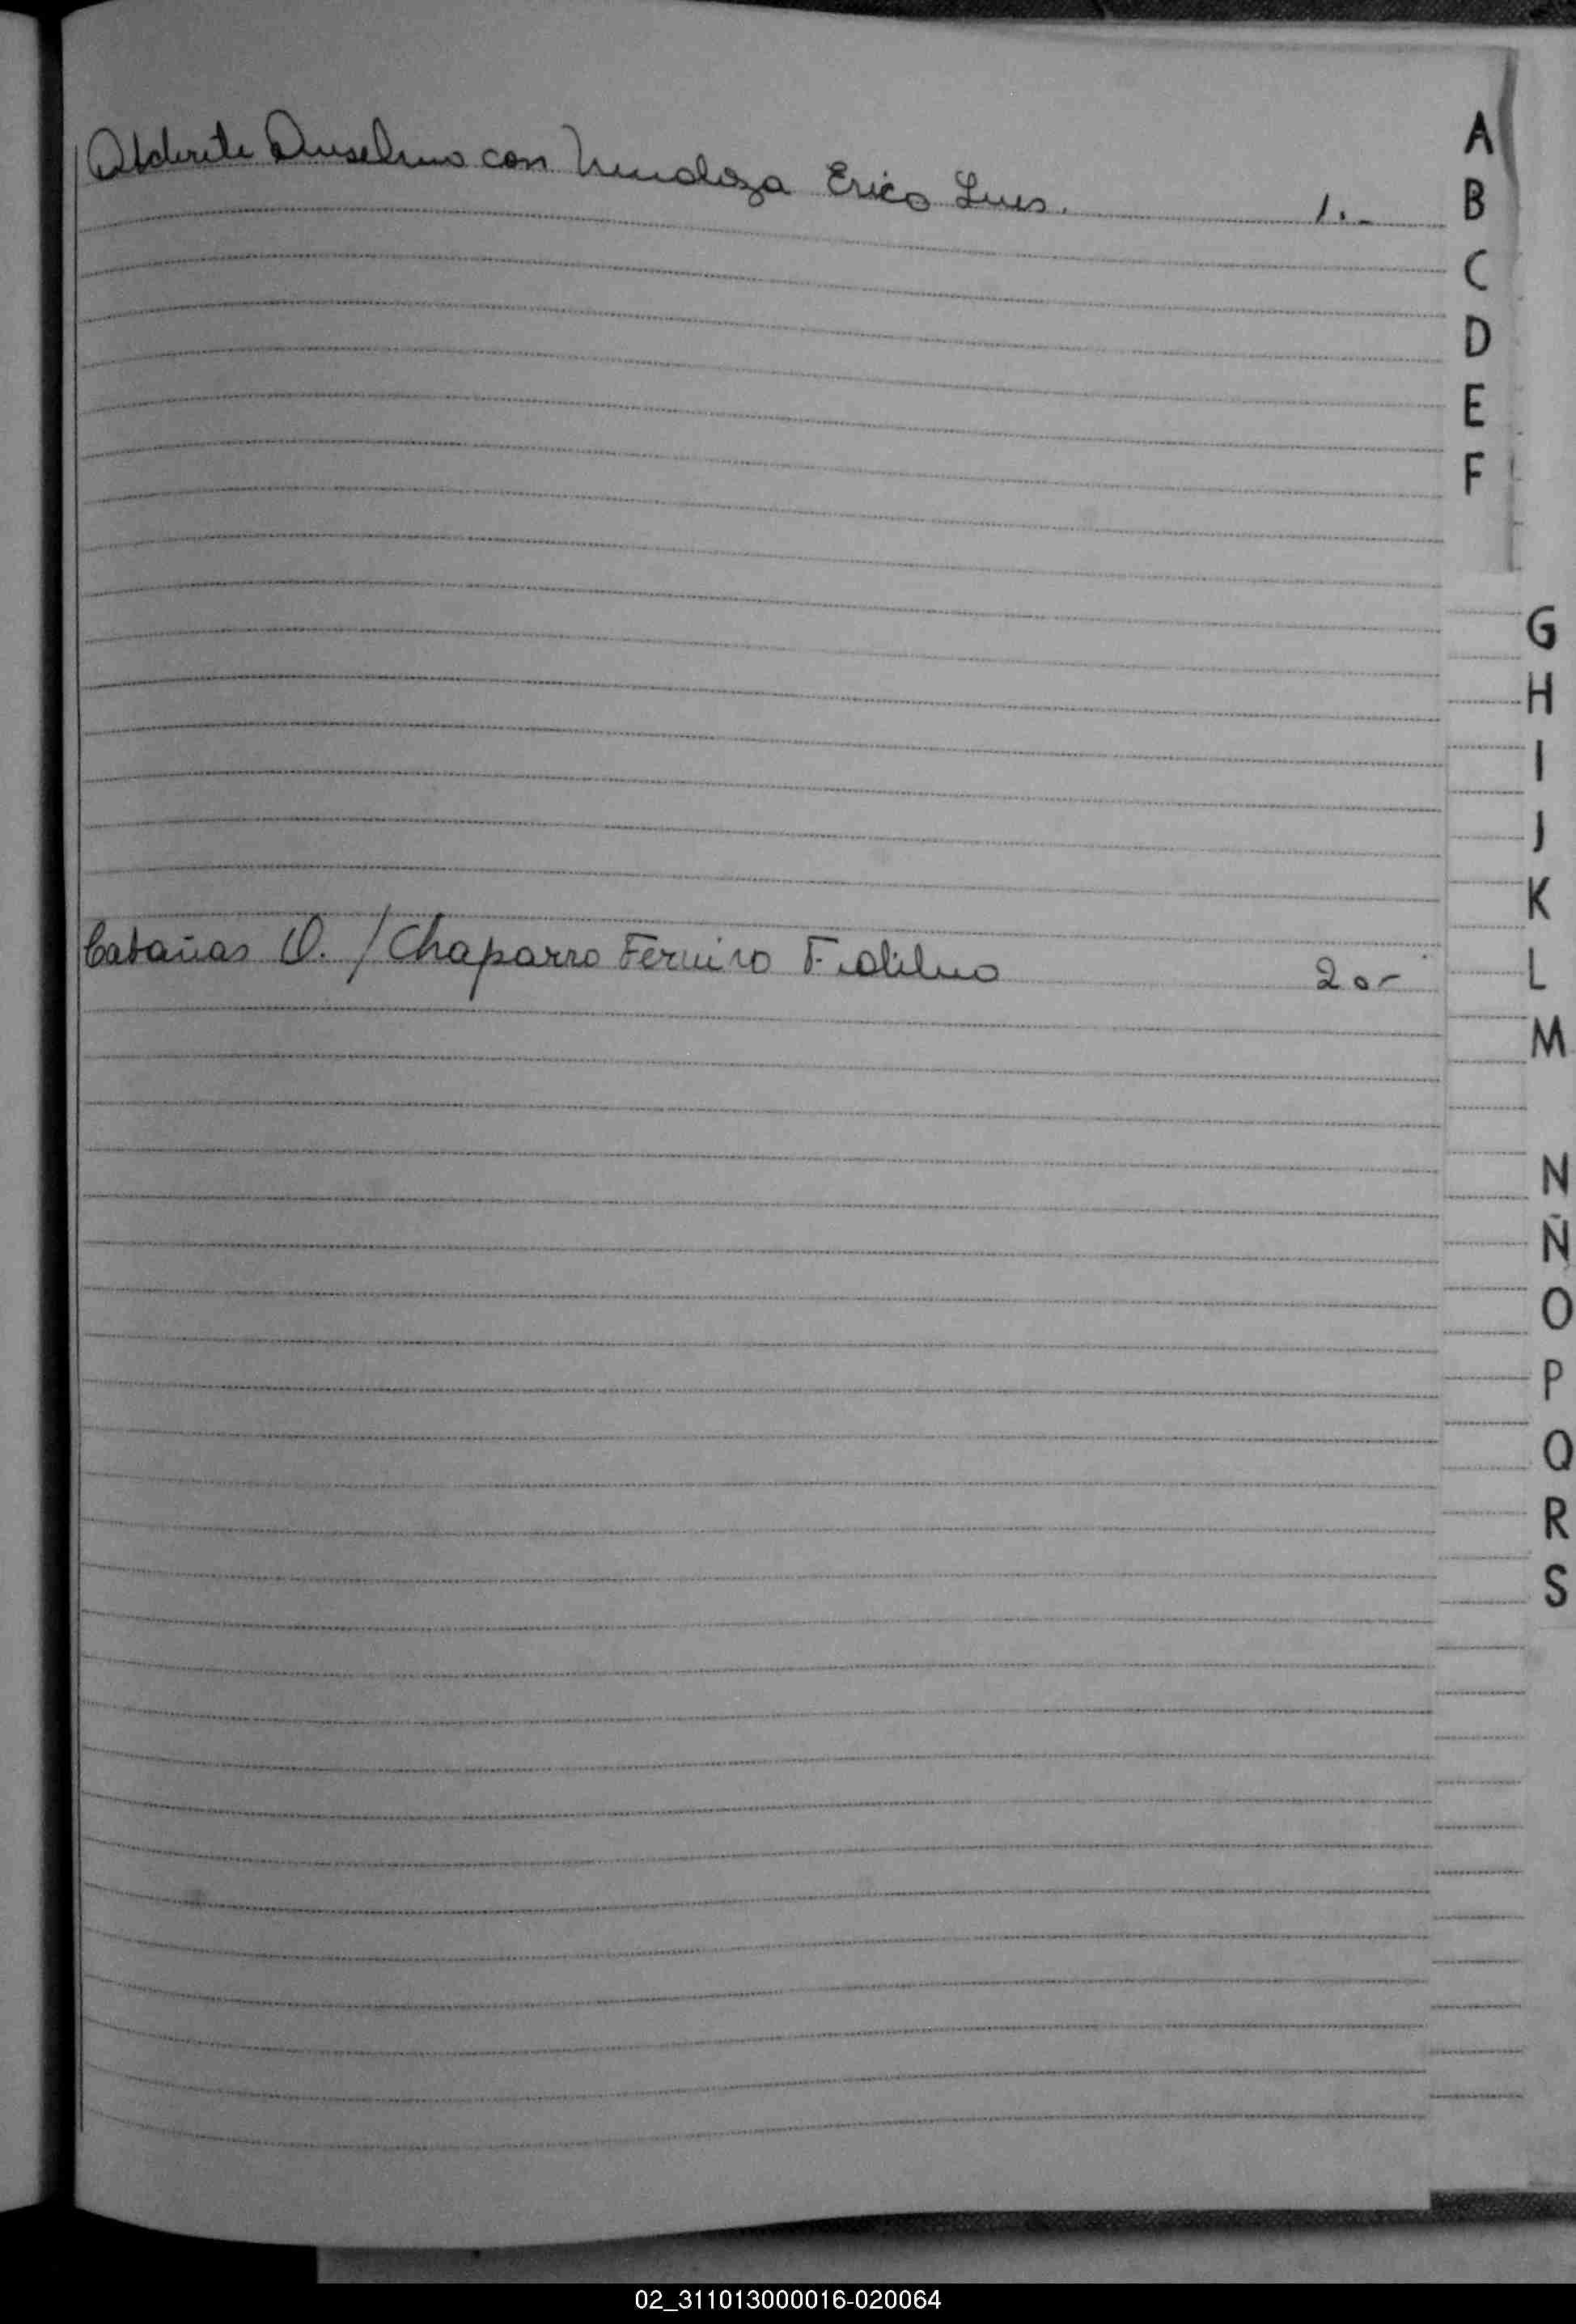 Alderete Anselmo con Mendoza Erico Luis. 1.-
A
B
C
D
E
F
G
H
I
J
K
Cabañas O. / Chaparro Ferreiro Fidelino 2.-
L
M
N
Ñ
O
P
Q
R
S
02_311013000016-020064